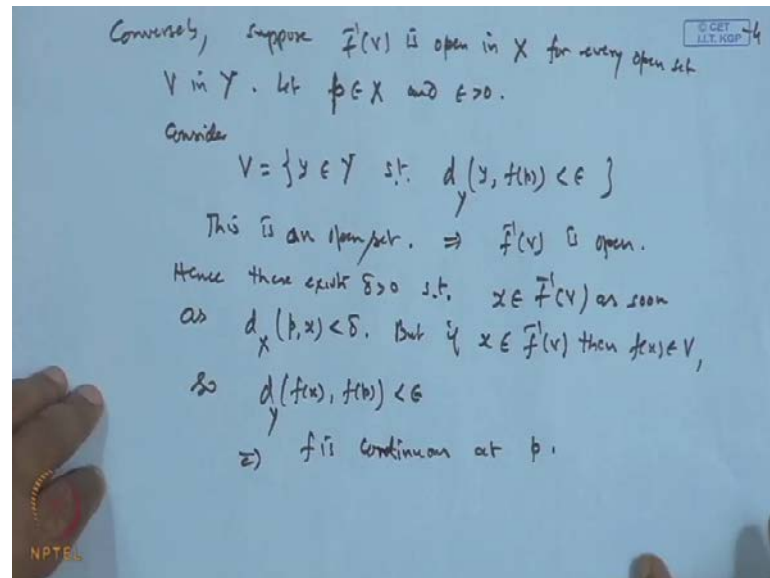 Conversely, suppose f⁻¹(V) is open in X for every open set
V in Y. Let p ∈ X and ε>0.
Consider
V = {y ∈ Y s.t. d_Y(y, f(p)) < ε}
This is an open set. ⇒ f⁻¹(V) is open.
Hence there exists δ>0 s.t. x ∈ f⁻¹(V) as soon
as d_X(p,x) < δ. But if x ∈ f⁻¹(V) then f(x) ∈ V,
So d_Y(f(x), f(p)) < ε
⇒ f is continuous at p.
© CET
I.I.T. KGP
NPTEL